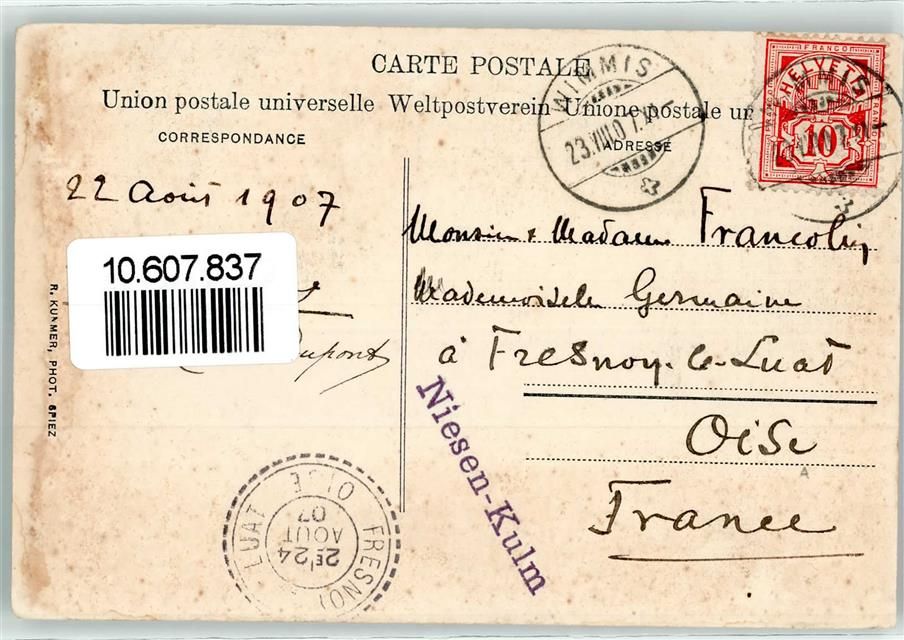 CARTE POSTALE
Union postale universelle Weltpostverein Unione postale un
CORRESPONDANCE
ADRESSE
WIMMIS
23.VIII.07.
FRANCO
HELVETIA
10
22 Août 1907
10.607.837
Dupont
R. KUMMER, PHOT. SPIEZ
Monsieur & Madame Francolin
Mademoiselle Germaine
à Fresnoy-le-Luat
Oise
France
Niesen-Kulm
FRESNOY LUAT
OISE
2E 24
AOUT
07